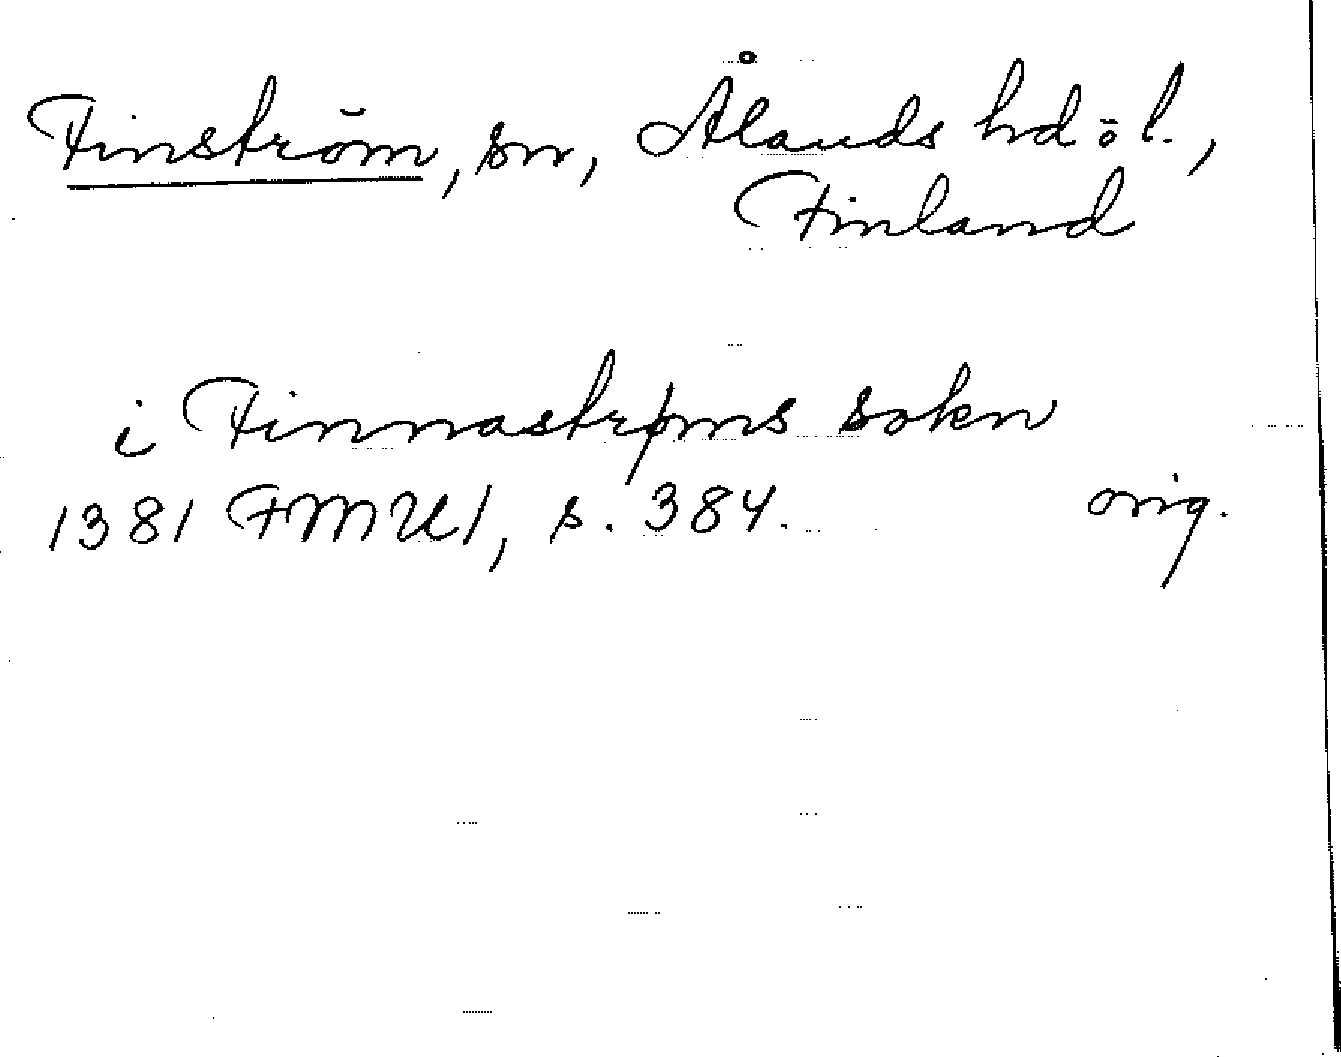 Finström, sn, Ålands hd o l.,
Finland
i Finnastrøms sokn
1381 FMU1, s. 384. orig.